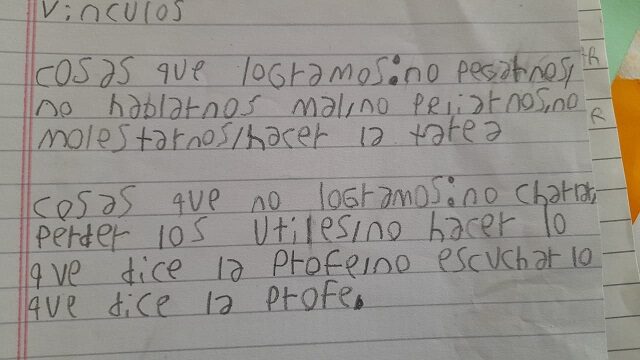 Vinculos
cosas que logramos:no pegarnos,
no hablarnos mal,no peliarnos,no
molestarnos,hacer la tarea
cosas que no logramos:no charlar,
perder los utiles,no hacer lo
que dice la profe,no escuchar lo
que dice la profe.